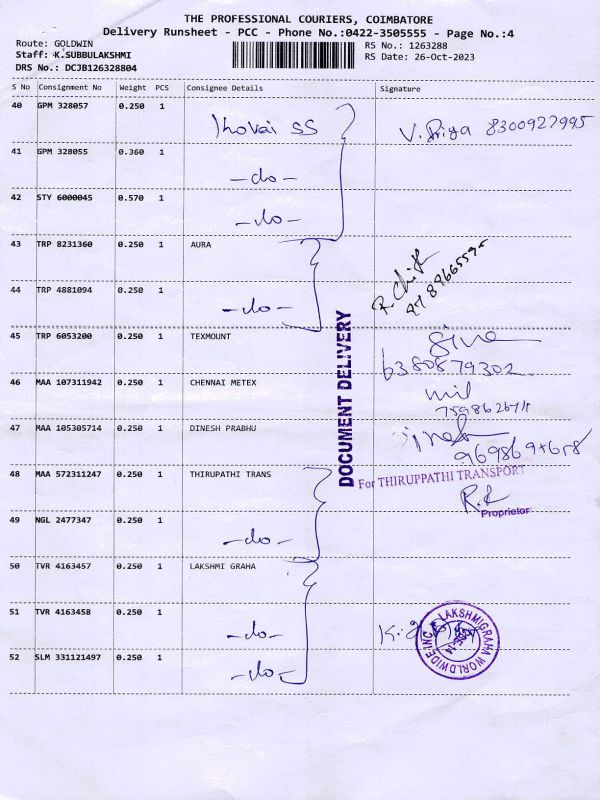 THE PROFESSIONAL COURIERS, COIMBATORE
Delivery Runsheet - PCC - Phone No.:0422-3505555 - Page No.:4
Route: GOLDWIN RS No.: 1263288
Staff: K.SUBBULAKSHMI RS Date: 26-Oct-2023
DRS No.: DCJB126328804
S No Consignment No Weight PCS Consignee Details Signature
40 GPM 328057 0.250 1 SS V. Priya 8300927995
41 GPM 328055 0.360 1 -do-
42 STY 6000045 0.570 1 -do-
43 TRP 8231360 0.250 1 AURA
44 TRP 4881094 0.250 1 -do-
45 TRP 6053200 0.250 1 TEXMOUNT
6380879302
46 MAA 107311942 0.250 1 CHENNAI METEX
47 MAA 105305714 0.250 1 DINESH PRABHU
DOCUMENT DELIVERY
48 MAA 572311247 0.250 1 THIRUPATHI TRANS
For THIRUPPATHI TRANSPORT
R.R
Proprietor
49 NGL 2477347 0.250 1 -do-
50 TVR 4163457 0.250 1 LAKSHMI GRAHA
51 TVR 4163458 0.250 1 -do-
LAKSHMIGRAHA WORLDWIDE INC
52 SLM 331121497 0.250 1 -do-